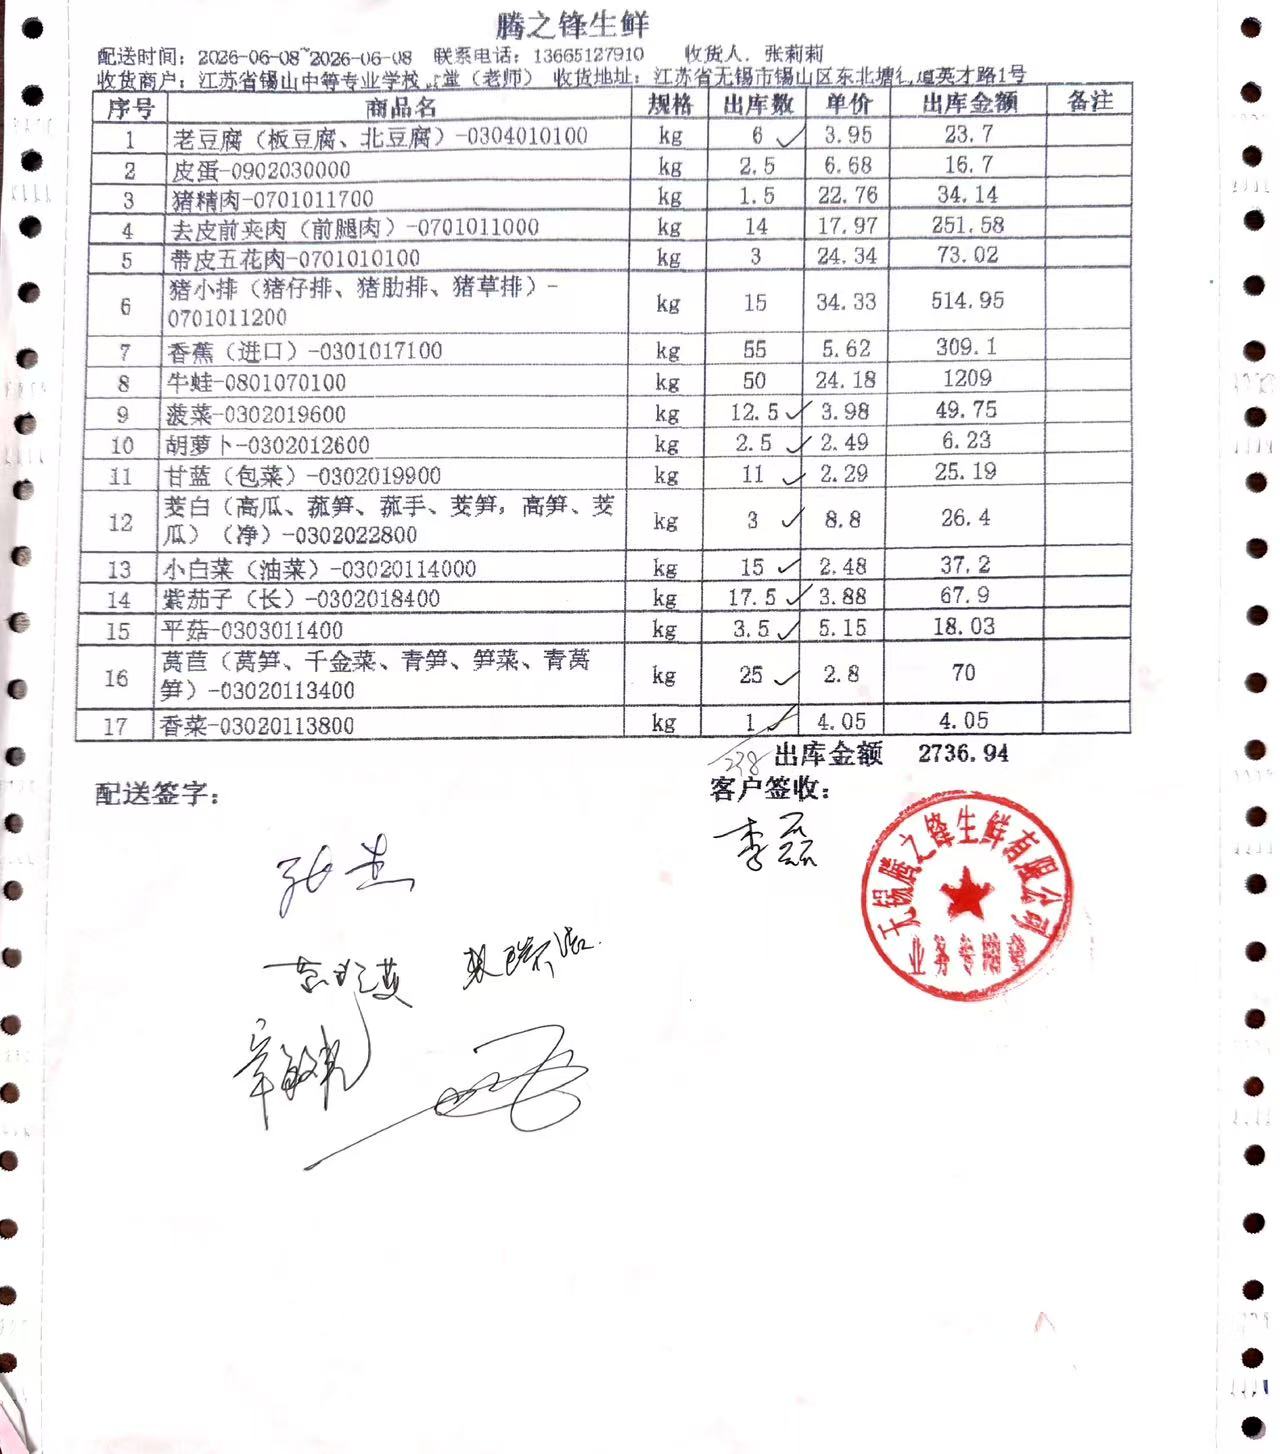 腾之锋生鲜
配送时间：2026-06-08~2026-06-08 联系电话：13665127910 收货人．张莉莉
收货商户：江苏省锡山中等专业学校 堂（老师） 收货地址：江苏省无锡市锡山区东北塘 道英才路1号
序号 商品名 规格 出库数 单价 出库金额 备注
1 老豆腐（板豆腐、北豆腐）-0304010100 kg 6 ✓ 3.95 23.7
2 皮蛋-0902030000 kg 2.5 6.68 16.7
3 猪精肉-0701011700 kg 1.5 22.76 34.14
4 去皮前夹肉（前腿肉）-0701011000 kg 14 17.97 251.58
5 带皮五花肉-0701010100 kg 3 24.34 73.02
6 猪小排（猪仔排、猪肋排、猪草排）-
0701011200 kg 15 34.33 514.95
7 香蕉（进口）-0301017100 kg 55 5.62 309.1
8 牛蛙-0801070100 kg 50 24.18 1209
9 菠菜-0302019600 kg 12.5 ✓ 3.98 49.75
10 胡萝卜-0302012600 kg 2.5 ✓ 2.49 6.23
11 甘蓝（包菜）-0302019900 kg 11 ✓ 2.29 25.19
12 茭白（高瓜、菰笋、菰手、茭笋，高笋、茭
瓜）（净）-0302022800 kg 3 ✓ 8.8 26.4
13 小白菜（油菜）-03020114000 kg 15 ✓ 2.48 37.2
14 紫茄子（长）-0302018400 kg 17.5 ✓ 3.88 67.9
15 平菇-0303011400 kg 3.5 ✓ 5.15 18.03
16 莴苣（莴笋、千金菜、青笋、笋菜、青莴
笋）-03020113400 kg 25 ✓ 2.8 70
17 香菜-03020113800 kg 1 ✓ 4.05 4.05
238 出库金额 2736.94
配送签字： 客户签收：
李磊
张杰
无锡腾之锋生鲜有限公司
业务专用章